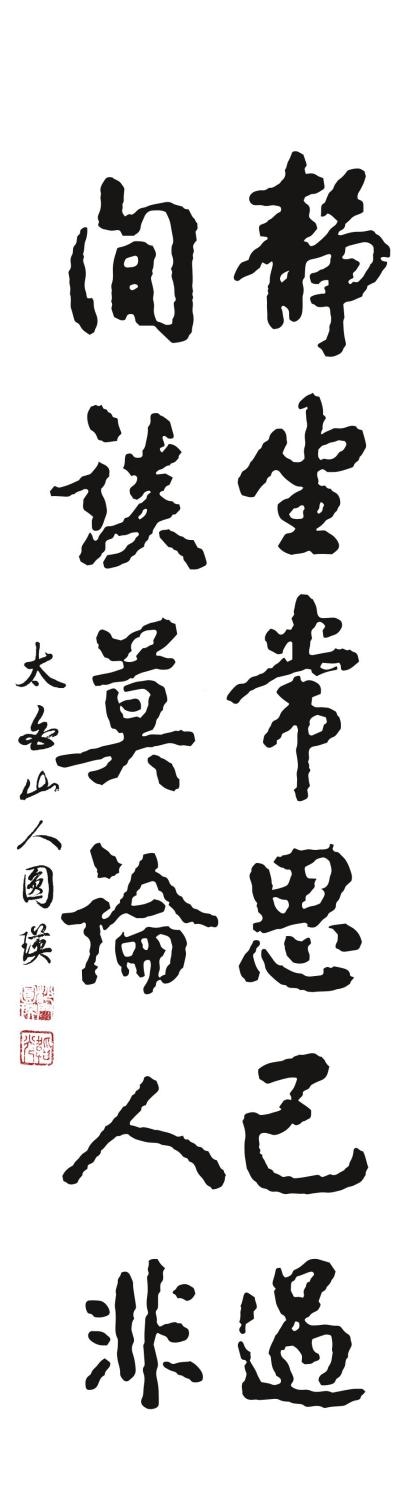 靜坐常思己過
閒談莫論人非
太白山人圓瑛